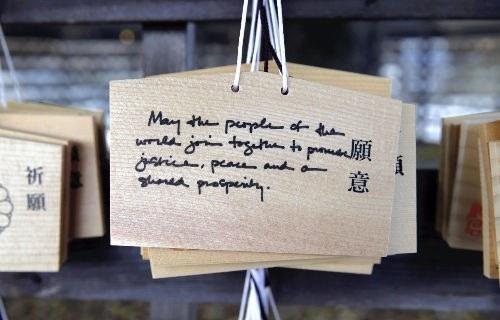 May the people of the
world join together to promote
justice, peace and a
shared prosperity.
願意
願
祈願